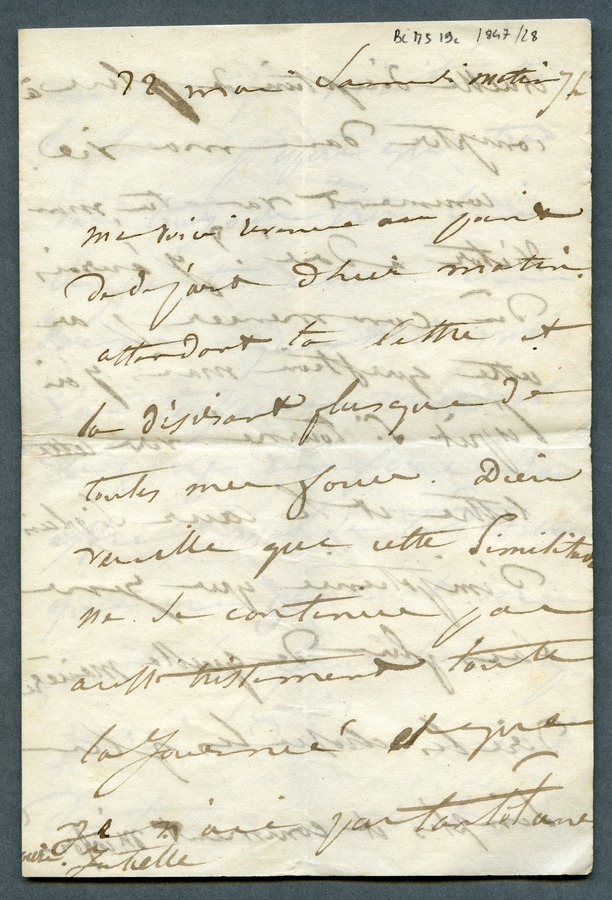 BC MS 19c /1847/28
22 mai Samedi matin 7h
me voici revenue au point
de départ d'hier matin.
attendant ta lettre et
la désirant plus que de
toutes mes forces. Dieu
veuille que cette similitude
ne se continue pas
aussi tristement toute
la journée et que
je n'aie pas